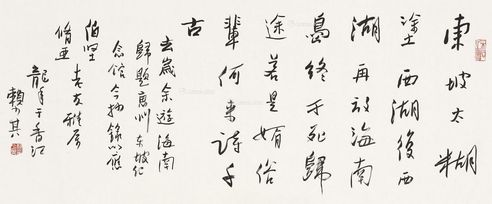 東坡太糊
塗西湖後西
湖再放海南
島終于死歸
途若是媚俗
輩何來詩千
古
去歲余遊海南
歸題惠州東坡紀
念館今抽錄以應
伯堅
脩亞老友雅屬
龍年于香江
賴少其